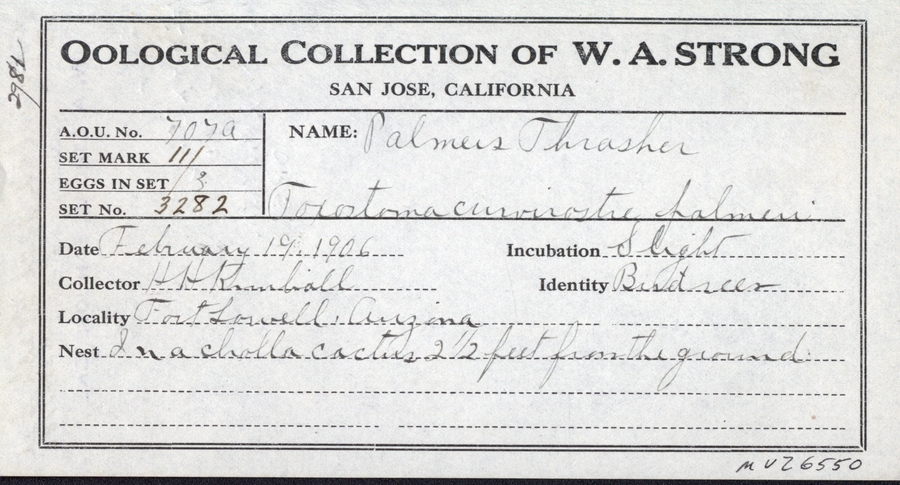 OOLOGICAL COLLECTION OF W. A. STRONG
SAN JOSE, CALIFORNIA
A.O.U. No. 707a
SET MARK 111/3
EGGS IN SET
SET No. 3282
NAME: Palmers Thrasher
Toxostoma curvirostre palmeri
Date February 19, 1906 Incubation Slight
Collector H H Kimball Identity Bird seen
Locality Fort Lowell, Arizona
Nest In a cholla cactus 2 1/2 feet from the ground
2982
MVZ 6550